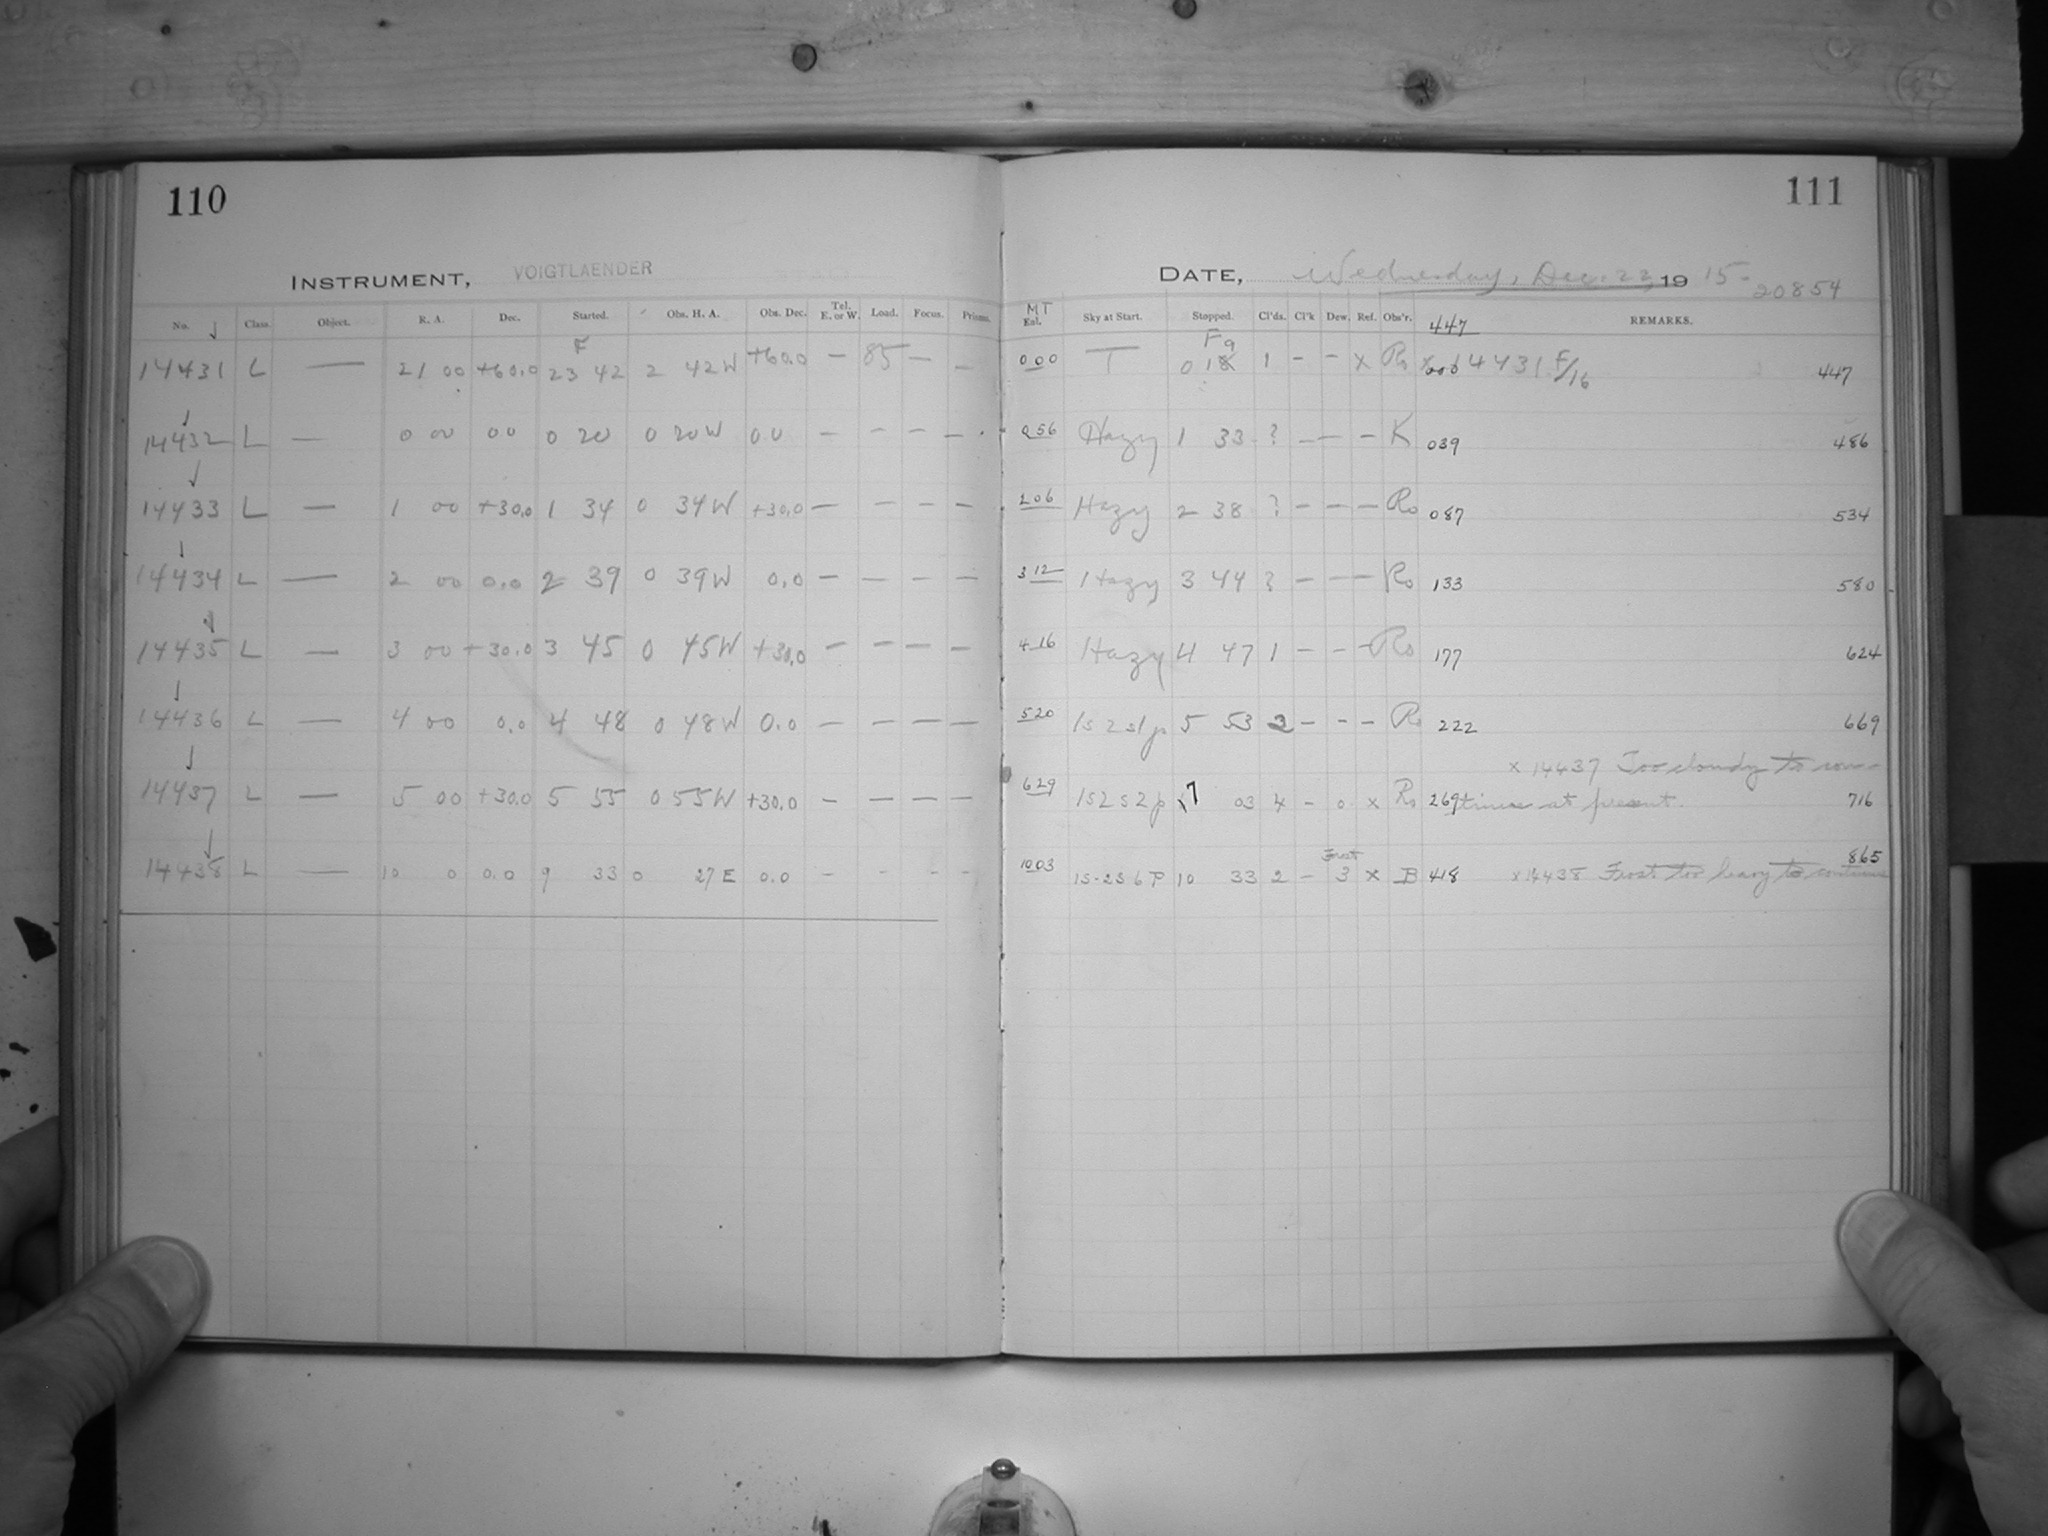 110
INSTRUMENT, VOIGTLAENDER
No. Class. Object. R. A. Dec. Started. Obs. H. A. Obs. Dec. Tel. E. or W. Load. Focus. Prisms.
14431 L — 21 00 +60.0 F 23 42 2 42 W +60.0 — 85 — —
14432 L — 0 00 00 0 20 0 20 W 0.0 — — — —
14433 L — 1 00 +30.0 1 34 0 34 W +30.0 — — — —
14434 L — 2 00 0.0 2 39 0 39 W 0.0 — — — —
14435 L — 3 00 +30.0 3 45 0 45 W +30.0 — — — —
14436 L — 4 00 0.0 4 48 0 48 W 0.0 — — — —
14437 L — 5 00 +30.0 5 55 0 55 W +30.0 — — — —
14438 L — 10 0 0.0 9 33 0 27 E 0.0 — — — —
111
DATE, Wednesday, Dec. 22, 1915-
20854
MT
Sky at Start. Stopped. Cl'ds. Cl'k Dew. Ref. Obs'r. REMARKS.
447
000 T F 0 19 1 — — x Ro 4431 F/16 447
056 Hazy 1 33 ? — — — K 039 486
206 Hazy 2 38 ? — — — Ro 087 534
312 Hazy 3 44 ? — — — Ro 133 580
416 Hazy 4 47 1 — — — Ro 177 624
520 1s 2 s1p 5 53 2 — — — Ro 222 669
x 14437 Too cloudy to con-
629 1s2 s2p 7 03 4 — 0 x Ro 269 tinue at present. 716
1003 1s-2s6P 10 33 2 — Frost 3 x B 418 x 14438 Frost too heavy to continue 865